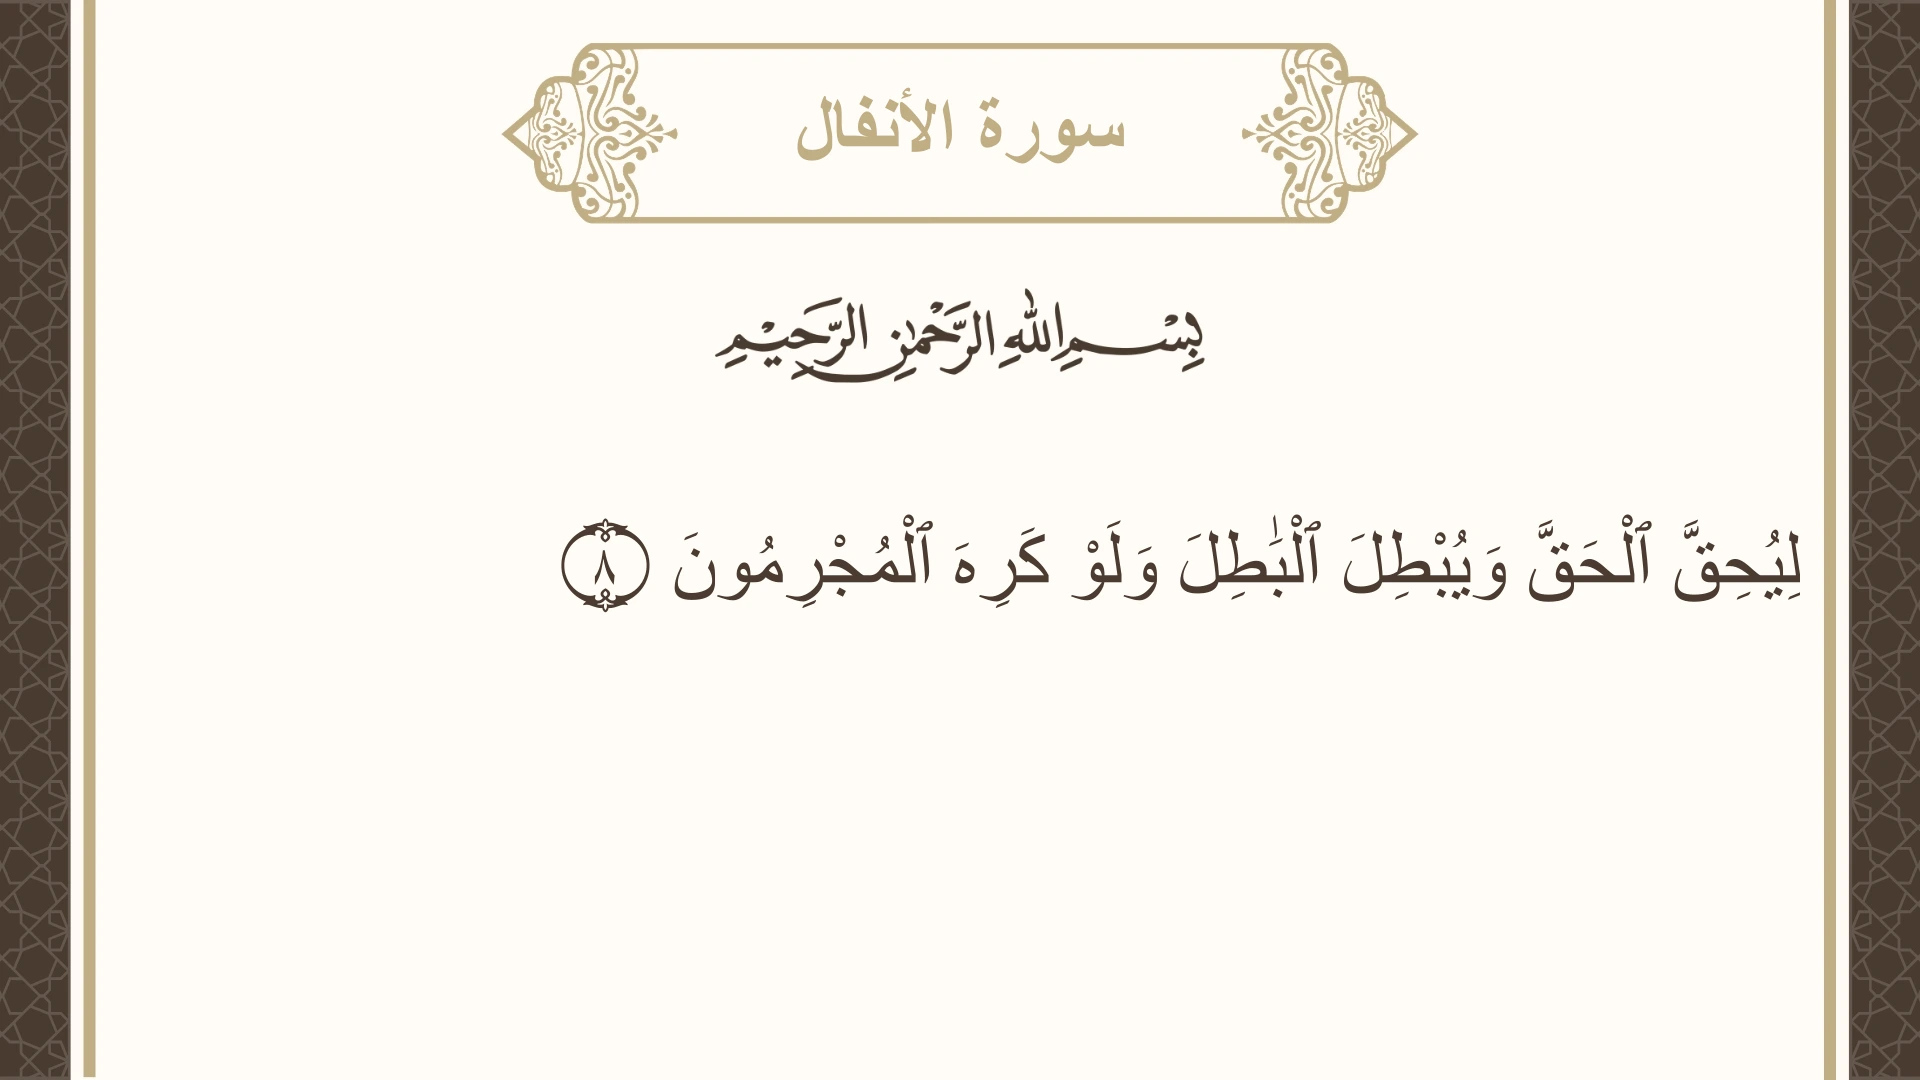 سورة الأنفال
بِسْمِ اللهِ الرَّحْمٰنِ الرَّحِيْمِ
لِيُحِقَّ ٱلْحَقَّ وَيُبْطِلَ ٱلْبَٰطِلَ وَلَوْ كَرِهَ ٱلْمُجْرِمُونَ ٨